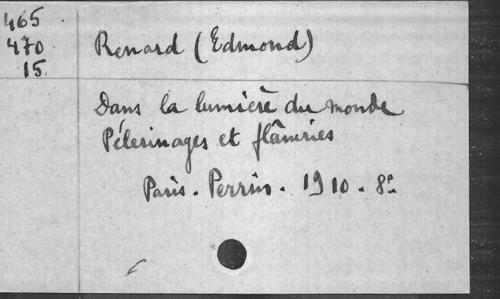 465
470
15.
Renard (Edmond)
Dans la lumière du monde
Pélerinages et flâneries
Paris. Perrin. 1910. 8º